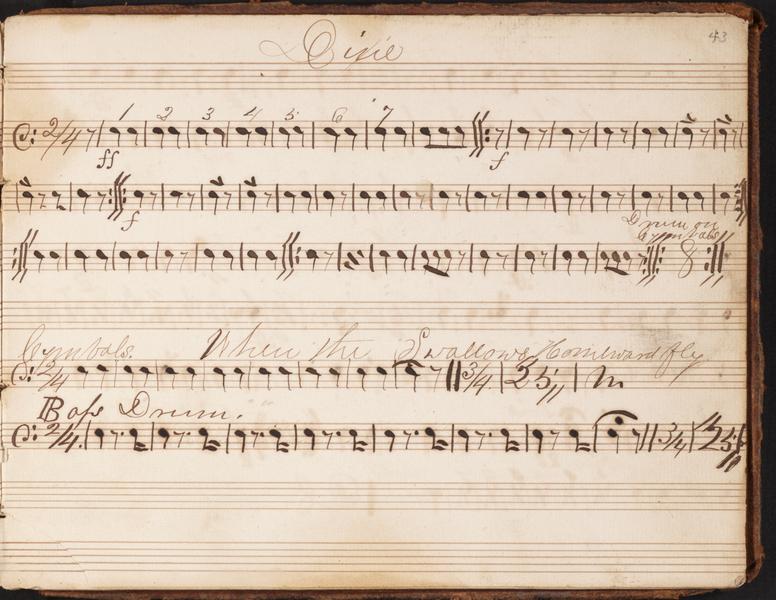 43
Dixie
1 2 3 4 5 6 7
2/4
ff f
f
Drum on
Cymbals
8
Cymbals. When the Swallows Homeward fly
2/4 3/4 25
Bass Drum.
2/4 3/4 25